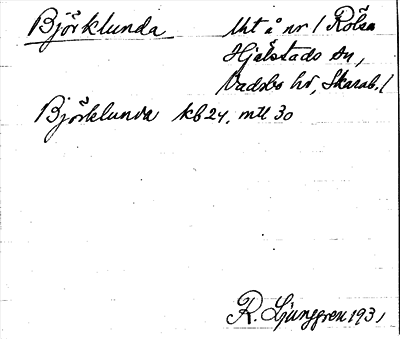 Björklunda Uht å nr 1 Rölsa
Hjälstads sn,
Vadsbo hd, Skarab. l
Björklunda kb 24, mtl 30
R. Ljunggren 1931